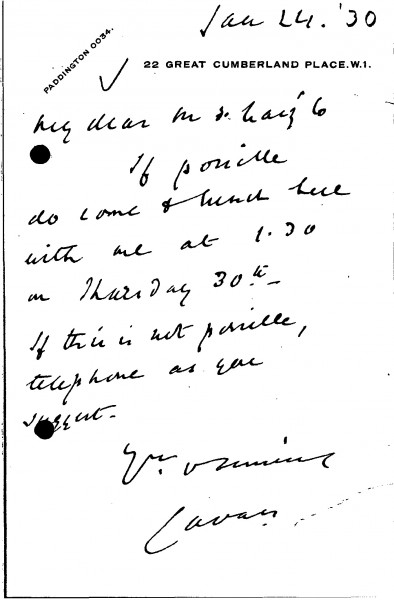 Jan 24. '30
PADDINGTON 0034.
22 GREAT CUMBERLAND PLACE. W.1.
My dear
If possible
do come & lunch here
with me at 1.30
on Thursday 30th
If this is not possible,
telephone as you
suggest.
Yrs
Cavan